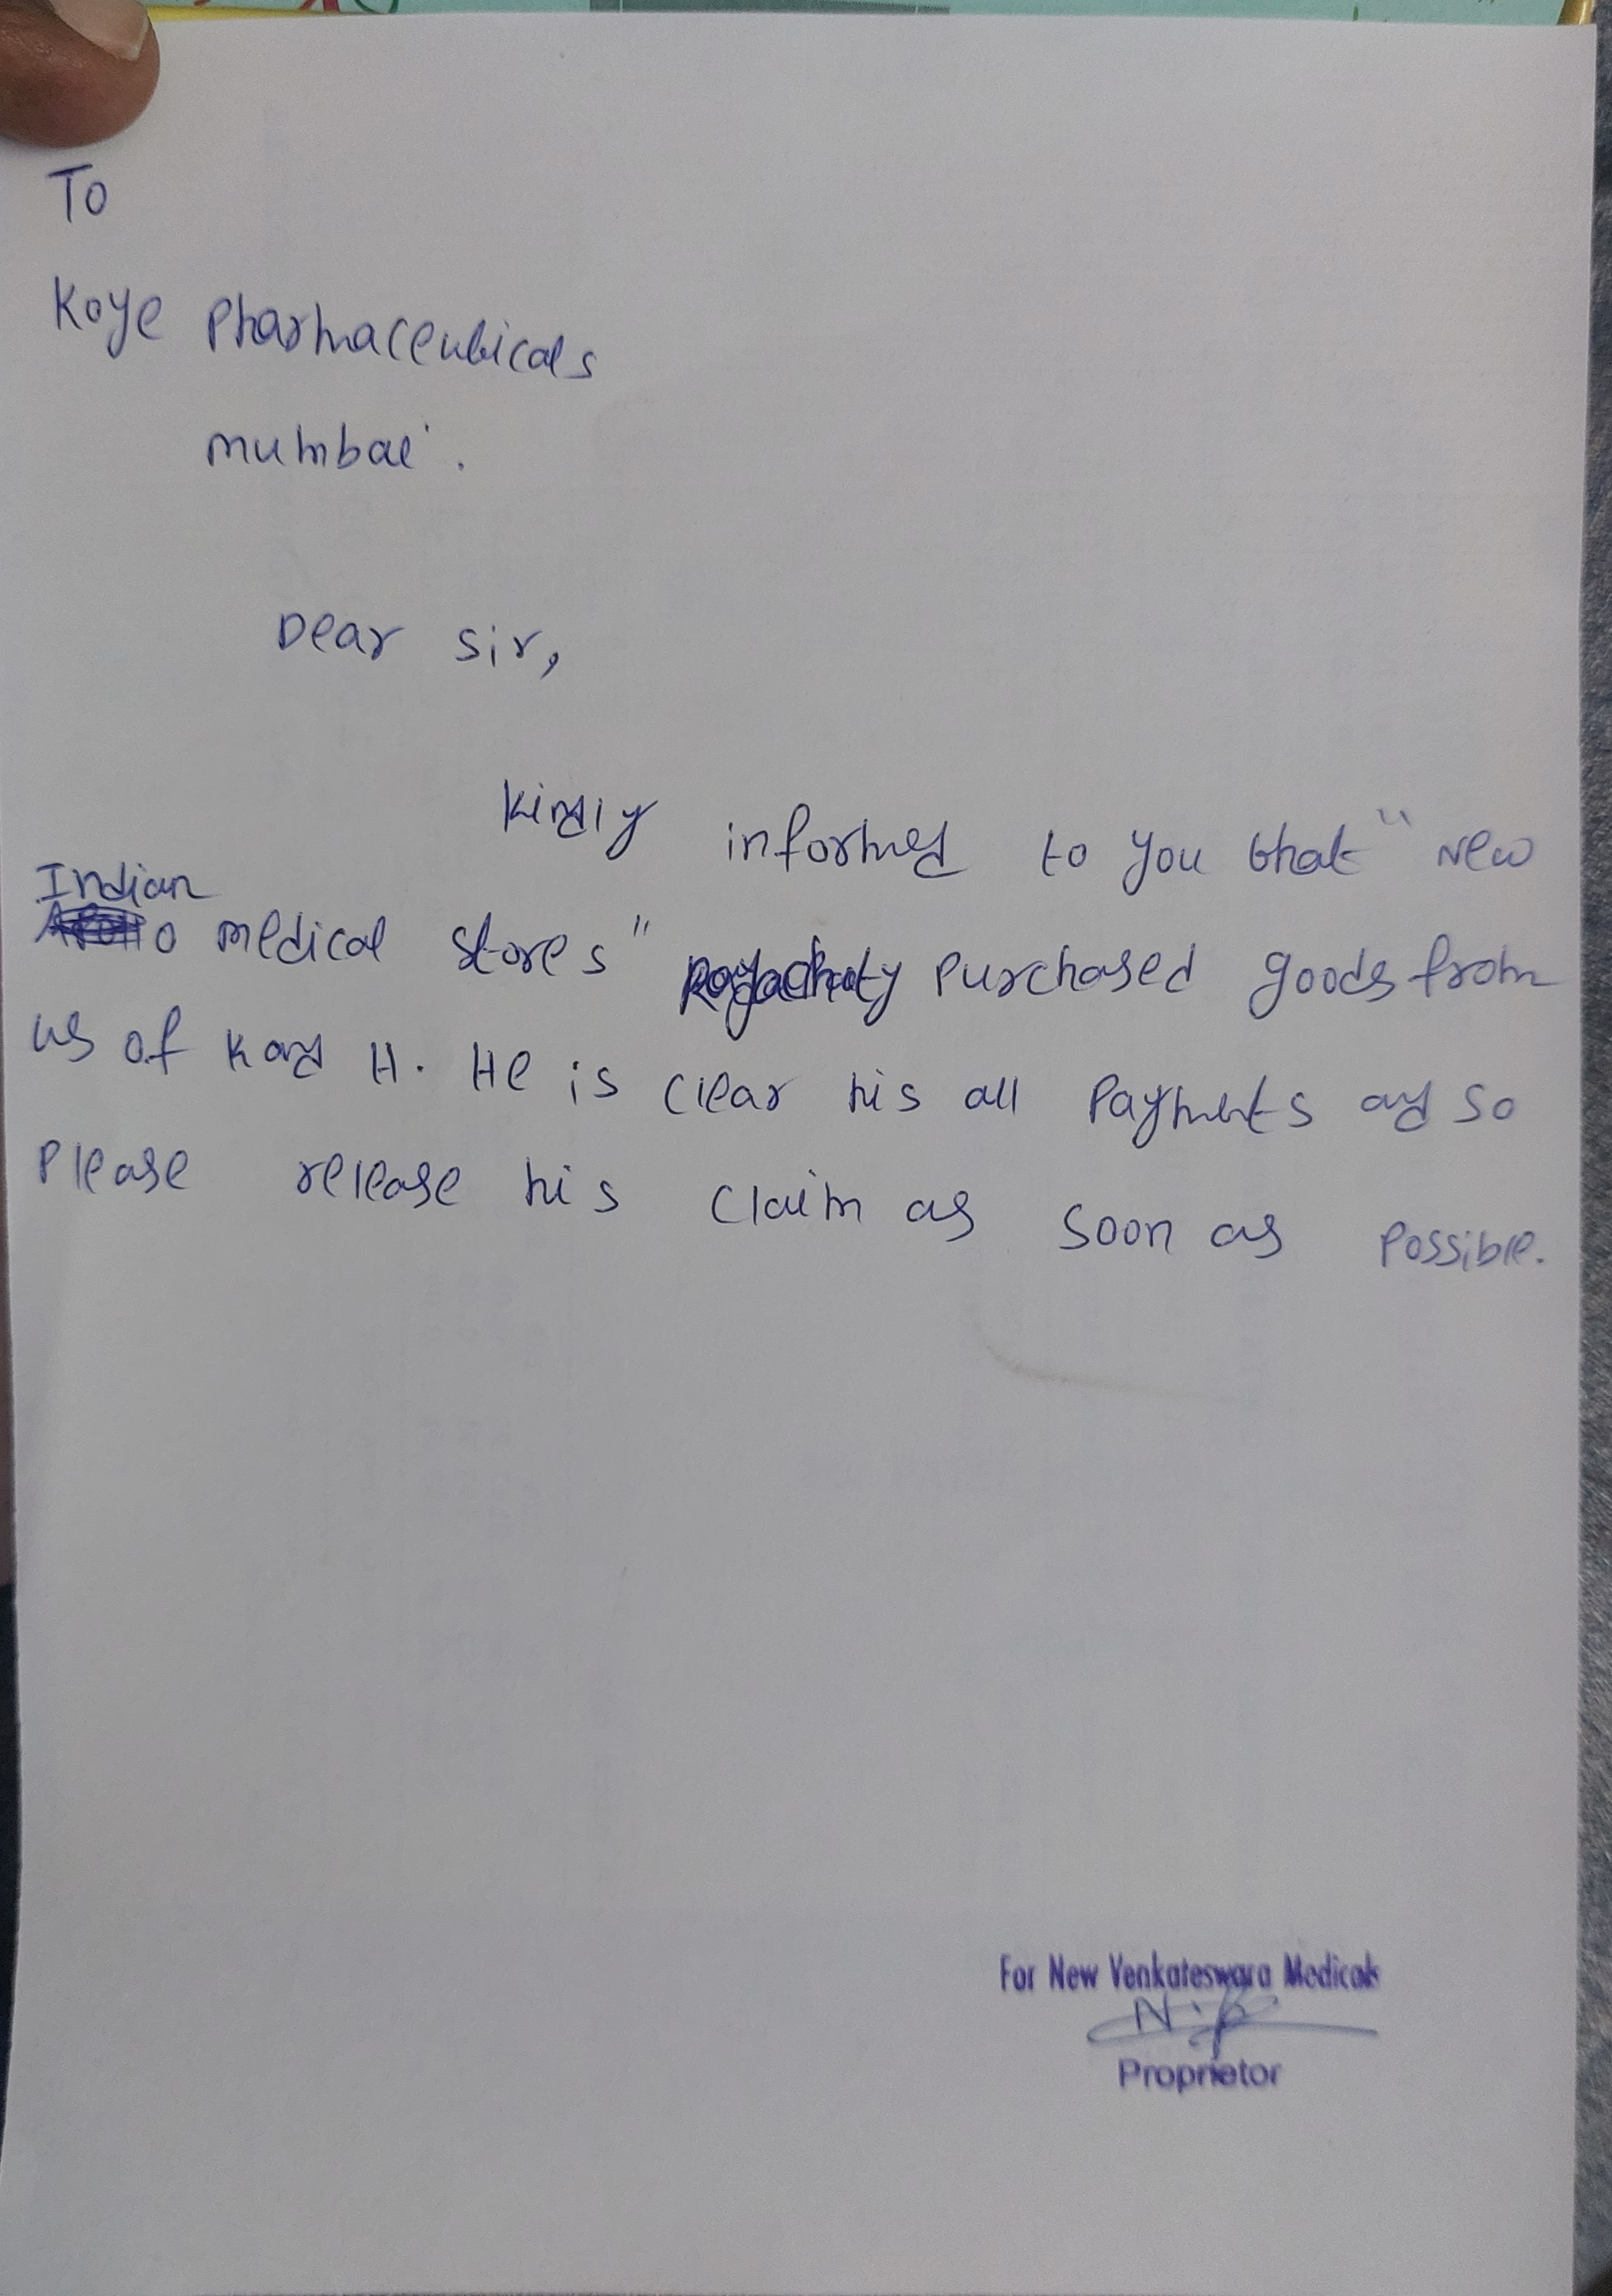 To
Koye Pharmaceuticals
mumbai.
Dear sir,
Kindly informed to you that "New
Indian
medical stores" purchased goods from
us of Kand H. He is clear his all Payments and so
Please release his claim as soon as Possible.
For New Venkateswara Medicals
Proprietor